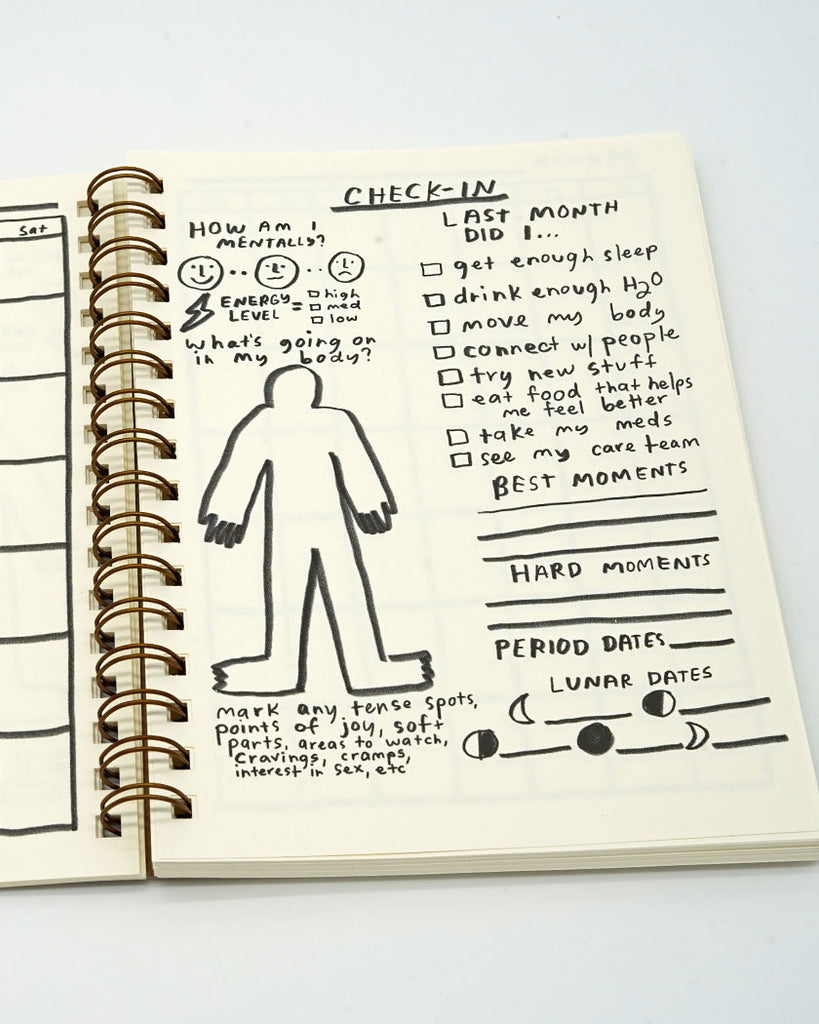 Sat
CHECK-IN
HOW AM I
MENTALLY?
ENERGY
LEVEL =
high
med
low
what's going on
in my body?
mark any tense spots,
points of joy, soft
parts, areas to watch,
cravings, cramps,
interest in sex, etc
LAST MONTH
DID I...
get enough sleep
drink enough H2O
move my body
connect w/ people
try new stuff
eat food that helps
me feel better
take my meds
see my care team
BEST MOMENTS
HARD MOMENTS
PERIOD DATES
LUNAR DATES